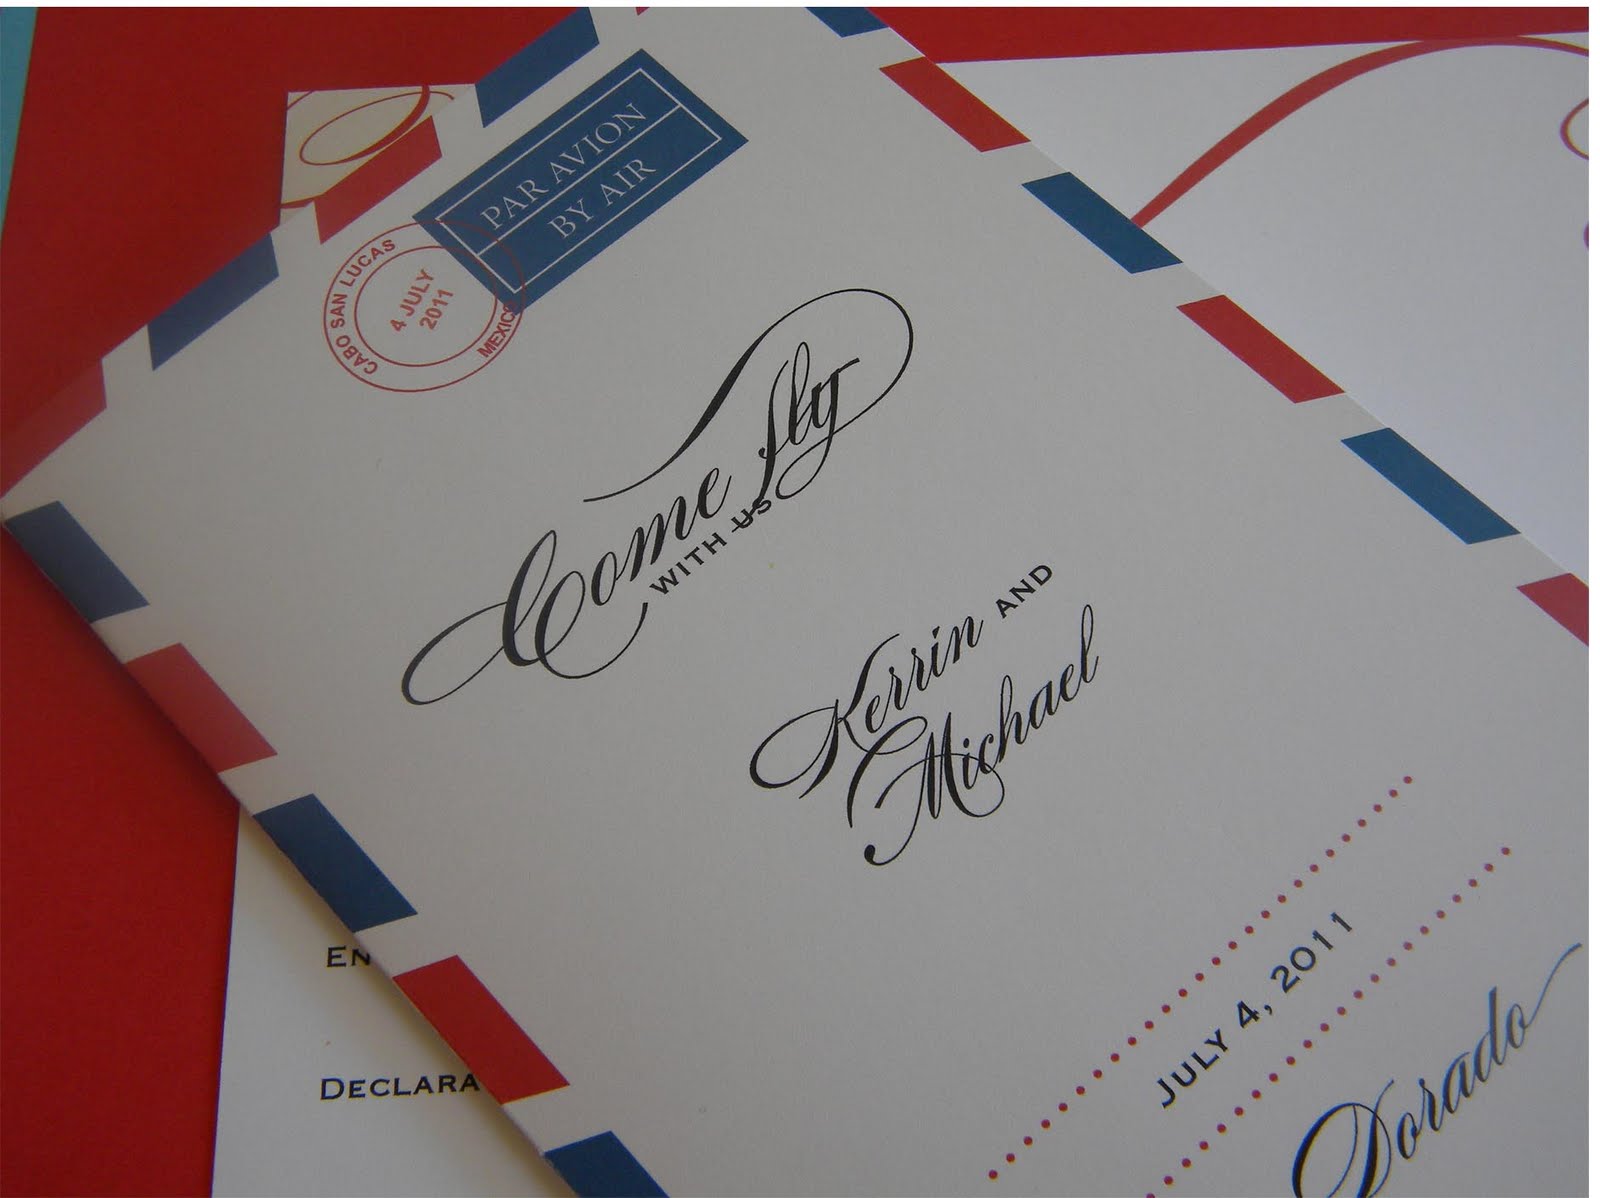 PAR AVION
BY AIR
CABO SAN LUCAS
4 JULY
2011
MEXICO
Come fly
WITH US
Kerrin AND
Michael
JULY 4, 2011
Dorado
EN
DECLARA